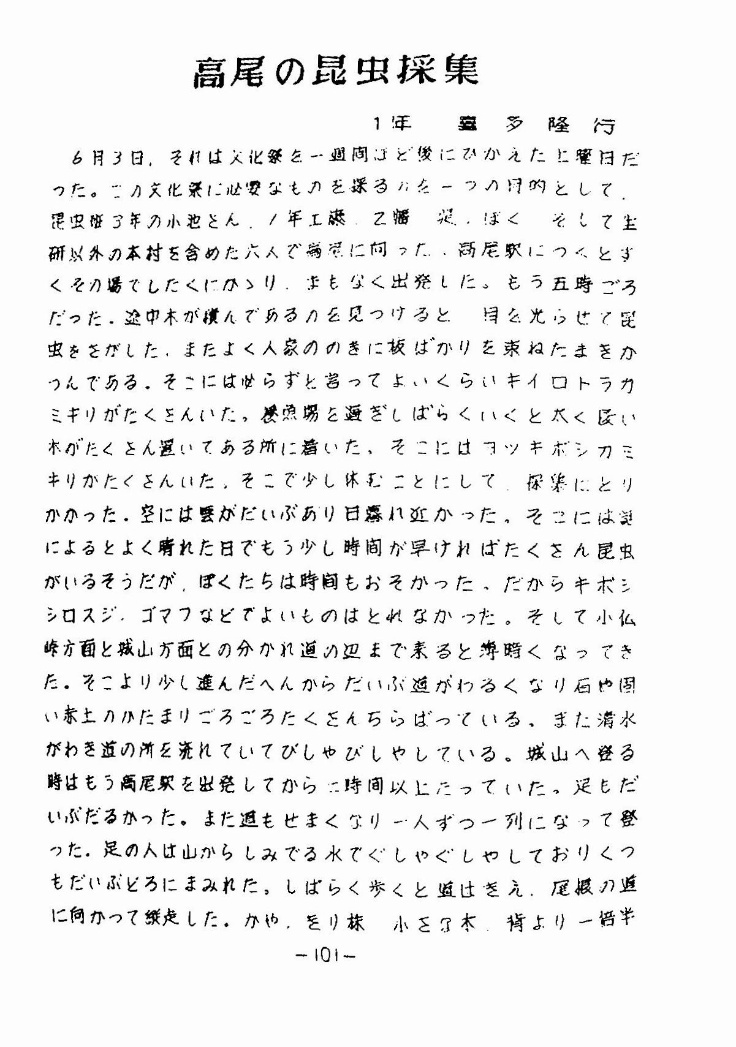 高尾の昆虫採集
1年 喜多隆行
6月3日,それは文化祭を一週間ほど後にひかえた土曜日だ
った。この文化祭に必要なものを採るのを一つの目的として,
昆虫班3年の小池さん,1年工藤,乙幡,ぼく,そして生
研以外の本村を含めた六人で高尾に向った。高尾駅につくとす
ぐその場でしたくにかゝり,まもなく出発した。もう五時ごろ
だった。途中木が積んであるのを見つけると,目を光らせて昆
虫をさがした,またよく人家ののきに板ばかりを束ねたまきが
つんである。そこには必らずと言ってよいくらいキイロトラカ
ミキリがたくさんいた。養魚場を過ぎしばらくいくと太く長い
木がたくさん置いてある所に着いた。そこにはヨツキボシカミ
キリがたくさんいた。そこで少し休むことにして,採集にとり
かかった。空には雲がだいぶあり日暮れ近かった。そこには話
によるとよく晴れた日でもう少し時間が早ければたくさん昆虫
がいるそうだが,ぼくたちは時間もおそかった。だからキボシ
シロスジ,ゴマフなどでよいものはとれなかった。そして小仏
峠方面と城山方面との分かれ道の辺まで来ると薄暗くなってき
た。そこより少し進んだへんからだいぶ道がわるくなり石や固
い赤土のかたまりごろごろたくさんちらばっている。また清水
がわき道の所を流れていてびしゃびしゃしている。城山へ登る
時はもう高尾駅を出発してから二時間以上たっていた。足もだ
いぶだるかった。また道もせまくなり一人ずつ一列になって登
った。足の人は山からしみでる水でぐしゃぐしゃしておりくつ
もだいぶどろにまみれた。しばらく歩くと道はきえ,尾根の道
に向かって縦走した。かや,きり株,小さな木,背より一倍半
-101-